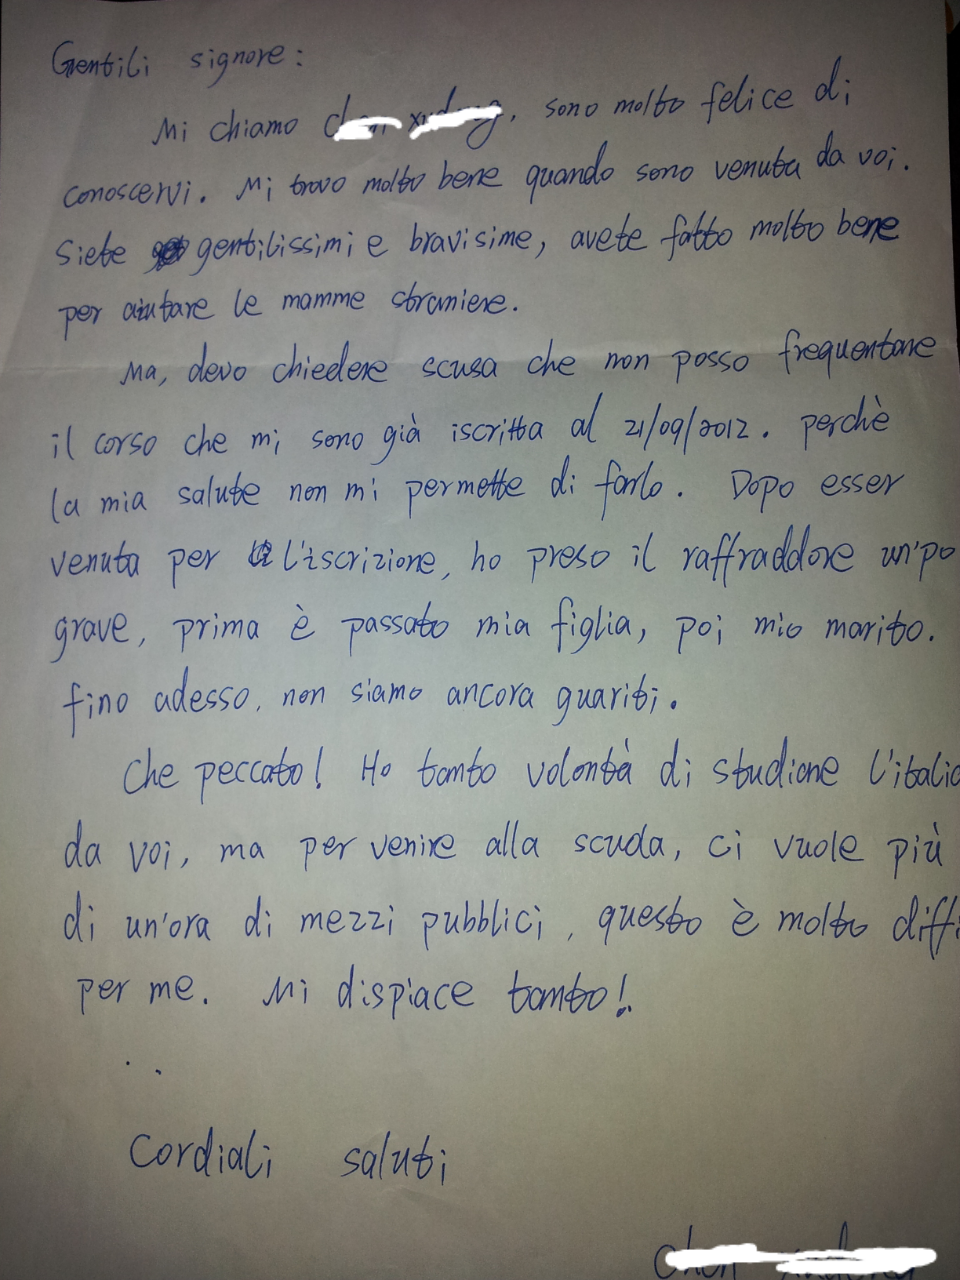 Gentili signore:
Mi chiamo , sono molto felice di
conoscervi. Mi trovo molto bene quando sono venuta da voi.
Siete gentilissimi e bravisime, avete fatto molto bene
per aiutare le mamme straniere.
Ma, devo chiedere scusa che non posso frequentare
il corso che mi sono già iscritta al 21/09/2012. perchè
la mia salute non mi permette di farlo. Dopo esser
venuta per l'iscrizione, ho preso il raffraddore un'po
grave, prima è passato mia figlia, poi mio marito.
fino adesso, non siamo ancora guariti.
Che peccato! Ho tanto volontà di studiare l'italia
da voi, ma per venire alla scuola, ci vuole più
di un'ora di mezzi pubblici, questo è molto diffi
per me. Mi dispiace tanto!
Cordiali saluti